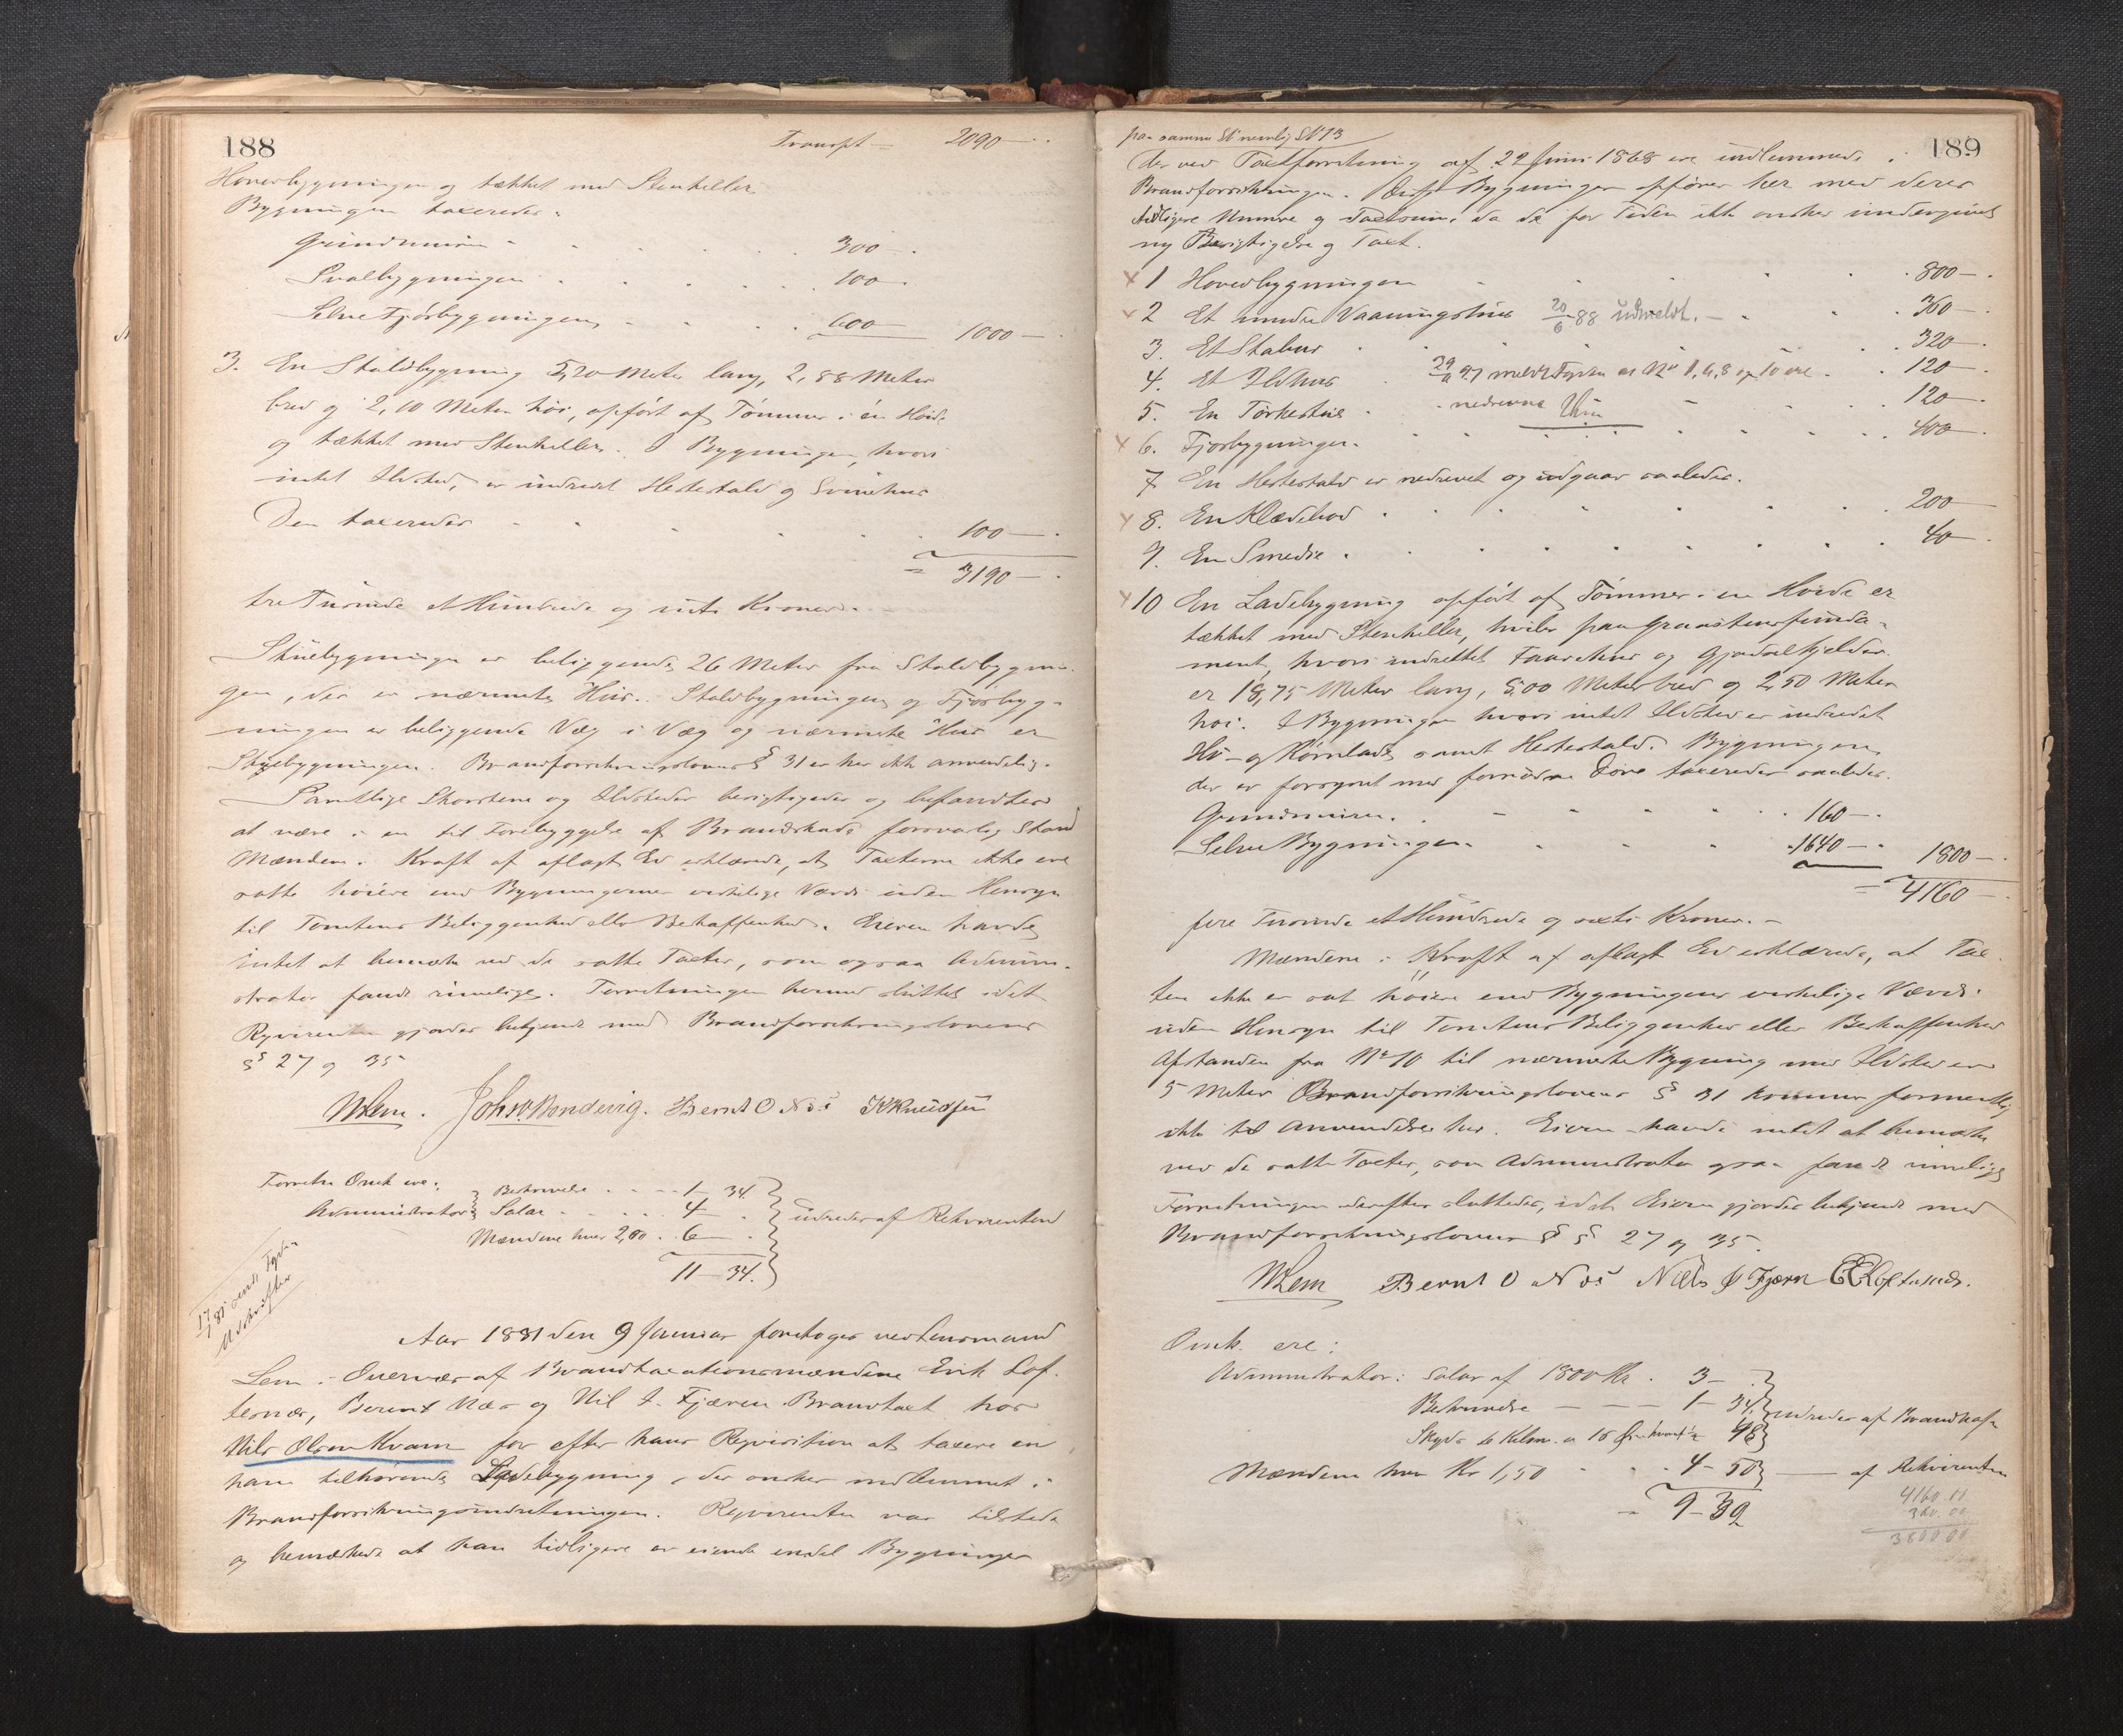 188
Transpt = 2090 —
Hovedbygningen og tækket med Stenheller
Bygningen taxeredes:
Grundmuren 300 —
Svalbygningen 100
Selve Fjøsbygningen 600 — 1000 —
3. En Staldbygning 5,20 Meter lang, 2,88 Meter
bred og 2,10 Meter høi, opført af Tømmer i én Høide
og tækket med Stenheller. I Bygningen, hvori
intet Ildsted, er indredet Hestestald og Svinehus
Den taxeredes 100 —
= 3190 —
tre Tusinde et Hundrede og niti Kroner. —
Stuebygningen er beliggende 26 Meter fra Staldbygnin-
gen, der er nærmeste Hus. Staldbygningen og Fjøsbyg-
ningen er beliggende Væg i Væg og nærmeste Hus er
Stuebygningen. Brandforsikringslovens § 31 er her ikke anvendelig.
Samtlige Skorstene og Ildsteder besigtigedes og befandtes
at være i en til Forebyggelse af Brandskade forsvarlig Stand
Mændene i Kraft af aflagt Ed erklærede, at Taxterne ikke ere
satte høiere end Bygningernes virkelige Værdi uden Hensyn
til Tomtens Beliggenhed eller Beskaffenhed. Eieren havde
intet at bemærke ved de satte Taxter, som ogsaa Admini-
strator fandt rimelige. Forretningen hermed sluttet idet
Reqvirenten gjordes bekjendt med Brandforsikringslovens
§§ 27 og 35
WLem. Johs Bondevig. Bernt O Nos K Knudsen
Forretn Omk ere:
Administrator: Beskrivelse 1 — 34
Salar 4 —
Mændene hver 2,00. 6 —
udredes af Rekvirenten
11 — 34.
Aar 1881 den 9 Januar foretoges ved Lensmand
Lem i Overvær af Brandtaxationsmændene Erik Lof-
tesnæs, Bernt Næs og Nils J. Fjæren Brandtaxt hos
Nils Olsen Kvam for efter hans Reqvisition at taxere en
ham tilhørende Ladebygning, der ønskes indlemmet i
Brandforsikringsindretningen. Reqvirenten var tilstede
og bemærkede at han tidligere er eiende endel Bygninger
189
paa samme St. nemlig SN 13
der ved Taxtforretning af 22 Juni 1868 ere indlemmede i
Brandforsikringen. Disse Bygninger opføres her med deres
tidligere Numre og Taxtsum, da de for Tiden ikke ønskes undergivet
ny Besigtigelse og Taxt.
x 1 Hovedbygningen 800 —
2 Et mindre Vaaningshus 20/6 88 udmeldt. — 360 —
3. Et Stabur 320 —
4. Et Ildhus 29/ 97 meldt Fgsten at No 1, 6, 8 og 10 ere 120 —
5. En Tørkestue nedrevne 120 —
x 6. Fjøsbygningen 400 —
7 En Hestestald er nedrevet og udgaar saaledes.
x 8. En Klædebod 200
9. En Smedie 40 —
x 10 En Ladebygning opført af Tømmer i en Høide er
tækket med Stenheller, hviler paa Graastensfunda-
ment, hvori indrettet Faarehus og Gjødselkjelder.
er 18,75 Meter lang, 5,00 Meter bred og 2,50 Meter
høi. I Bygningen hvori intet Ildsted er indredet
Hø- og Kornlade samt Hestestald. Bygningen,
der er forsynet med fornødne Døre taxeredes saaledes.
Grundmuren 160 —
Selve Bygningen 1640 — 1800 —
= 4160 —
fire Tusinde et Hundrede og sexti Kroner. —
Mændene i Kraft af aflagt Ed erklærede, at Tax-
ten ikke er sat høiere end Bygningens virkelige Værdi
uden Hensyn til Tomtens Beliggenhed eller Beskaffenhed
Afstanden fra No 10 til nærmeste Bygning med Ildsted er
5 Meter Brandforsikringslovens § 31 kommer formentlig
ikke til Anvendelse her. Eieren havde intet at bemærke
ved de satte Taxter, som Administrator ogsaa fandt rimelige
Forretningen derefter sluttedes, idet Eieren gjordes bekjendt med
Brandforsikringslovens §§ 27 og 35.
WLem Bernt O Nos Niels J Fjærn E E Loftesnæs.
Omk. ere:
Administrator: Salar af 1800 Kr. 3 —
Beskrivelse — — — 1 — 34
Skyds 6 Kilm. a 16 Øre 98
udredes af Brandkassen
Mændene hver Kr 1,50 4 — 50 — af Rekvirenten
= 9 — 32
4160 11
360.00
3800 00